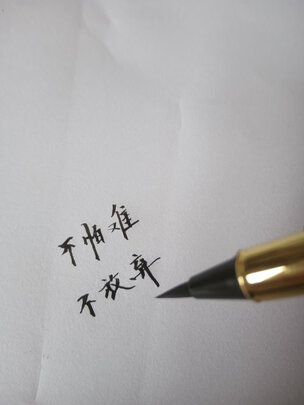 不怕难
不放弃